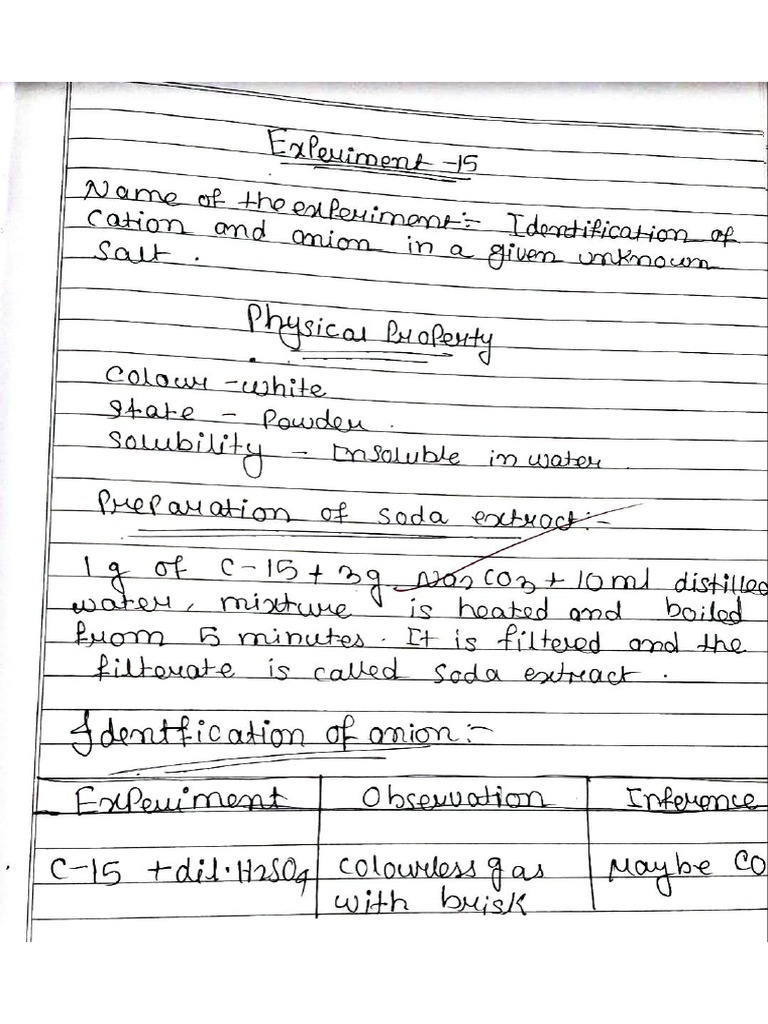 Experiment -15
Name of the experiment:- Identification of
cation and anion in a given unknown
salt.
Physical Property
Colour - White
State - Powder.
Solubility - Insoluble in water.
Preparation of soda extract:-
1g of C-15 + 3g Na2CO3 + 10ml distilled
water, mixture is heated and boiled
from 5 minutes. It is filtered and the
filterate is called soda extract.
Identfication of anion:-
Experiment Observation Inference
C-15 + dil. H2SO4 colourless gas Maybe CO
with brisk